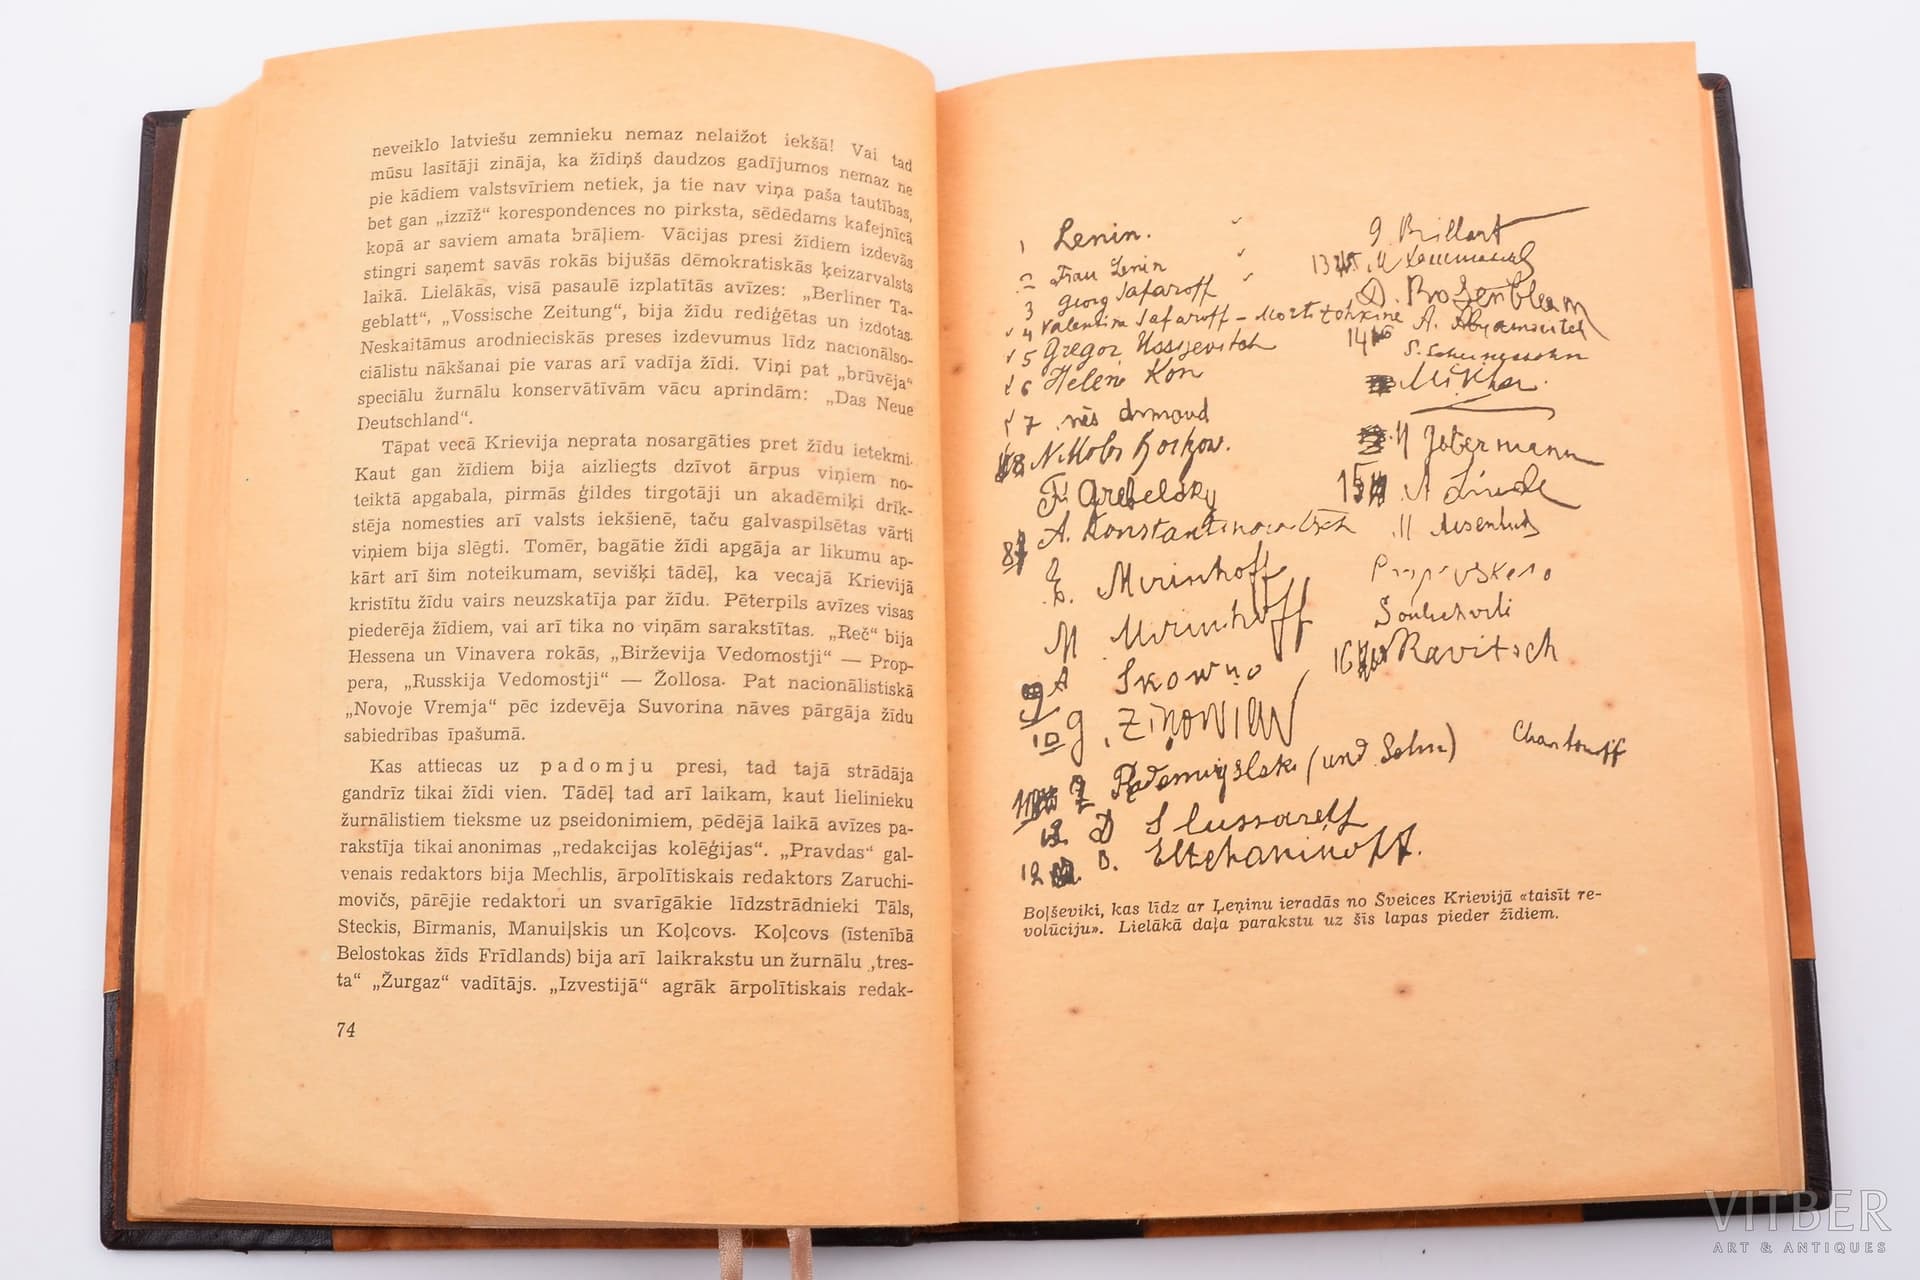 neveiklo latviešu zemnieku nemaz nelaižot iekšā! Vai tad
mūsu lasītāji zināja, ka žīdiņš daudzos gadījumos nemaz ne
pie kādiem valstsvīriem netiek, ja tie nav viņa paša tautības,
bet gan „izzīž“ korespondences no pirksta, sēdēdams kafejnīcā
kopā ar saviem amata brāļiem. Vācijas presi žīdiem izdevās
stingri saņemt savās rokās bijušās dēmokratiskās ķeizarvalsts
laikā. Lielākās, visā pasaulē izplatītās avīzes: „Berliner Ta-
geblatt“, „Vossische Zeitung“, bija žīdu rediģētas un izdotas.
Neskaitāmus arodnieciskās preses izdevumus līdz nacionālso-
ciālistu nākšanai pie varas arī vadīja žīdi. Viņi pat „brūvēja“
speciālu žurnālu konservātīvām vācu aprindām: „Das Neue
Deutschland“.
Tāpat vecā Krievija neprata nosargāties pret žīdu ietekmi.
Kaut gan žīdiem bija aizliegts dzīvot ārpus viņiem no-
teiktā apgabala, pirmās ģildes tirgotāji un akadēmiķi drīk-
stēja nomesties arī valsts iekšienē, taču galvaspilsētas vārti
viņiem bija slēgti. Tomēr, bagātie žīdi apgāja ar likumu ap-
kārt arī šim noteikumam, sevišķi tādēļ, ka vecajā Krievijā
kristītu žīdu vairs neuzskatīja par žīdu. Pēterpils avīzes visas
piederēja žīdiem, vai arī tika no viņām sarakstītas. „Reč“ bija
Hessena un Vinavera rokās, „Birževija Vedomostji“ — Prop-
pera, „Russkija Vedomostji“ — Žollosa. Pat nacionālistiskā
„Novoje Vremja“ pēc izdevēja Suvorina nāves pārgāja žīdu
sabiedrības īpašumā.
Kas attiecas uz padomju presi, tad tajā strādāja
gandrīz tikai žīdi vien. Tādēļ tad arī laikam, kaut lielinieku
žurnālistiem tieksme uz pseidonimiem, pēdējā laikā avīzes pa-
rakstīja tikai anonimas „redakcijas kolēģijas“. „Pravdas“ gal-
venais redaktors bija Mechlis, ārpolītiskais redaktors Zaruchi-
movičs, pārējie redaktori un svarīgākie līdzstrādnieki Tāls,
Steckis, Bīrmanis, Manuiļskis un Koļcovs. Koļcovs (īstenībā
Belostokas žīds Frīdlands) bija arī laikrakstu un žurnālu „tres-
ta“ „Žurgaz“ vadītājs. „Izvestijā“ agrāk ārpolītiskais redak-
74
1 Lenin.
2 Frau Lenin
3 Georg Safaroff
4 Valentina Safaroff -
5 Gregor Ussijevitch
6 Helene Kon
7
8 N.
F. Grebelsky
A. Konstantinowitsch
E. Mirinhoff
M Mirinhoff
9 A Skowno
10 g. Zinowiew
(und Sohn)
12 D Slussareff
12 B. Eltchaninoff.
g. Brillant
13
D. Rosenblum
14 A. Abramovitch
S. Scheinessohn
Mikha
M. Gobermann
15 A Linde
M
Souliachvili
16 Ravitsch
Charitonoff
Boļševiki, kas līdz ar Ļeņinu ieradās no Šveices Krievijā «taisīt re-
volūciju». Lielākā daļa parakstu uz šīs lapas pieder žīdiem.
VITBER
ART & ANTIQUES